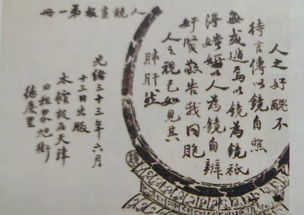 人鏡畫報第一冊
人之好醜不
待言傳以鏡自照
無或遁焉以鏡為鏡祗
得媸妍以人為鏡自辨
奸賢敬告我同胞
人之視己如見其
肺肝然
光緒三十三年六月
十三日出版
本館設在天津
日租界旭街
德慶里